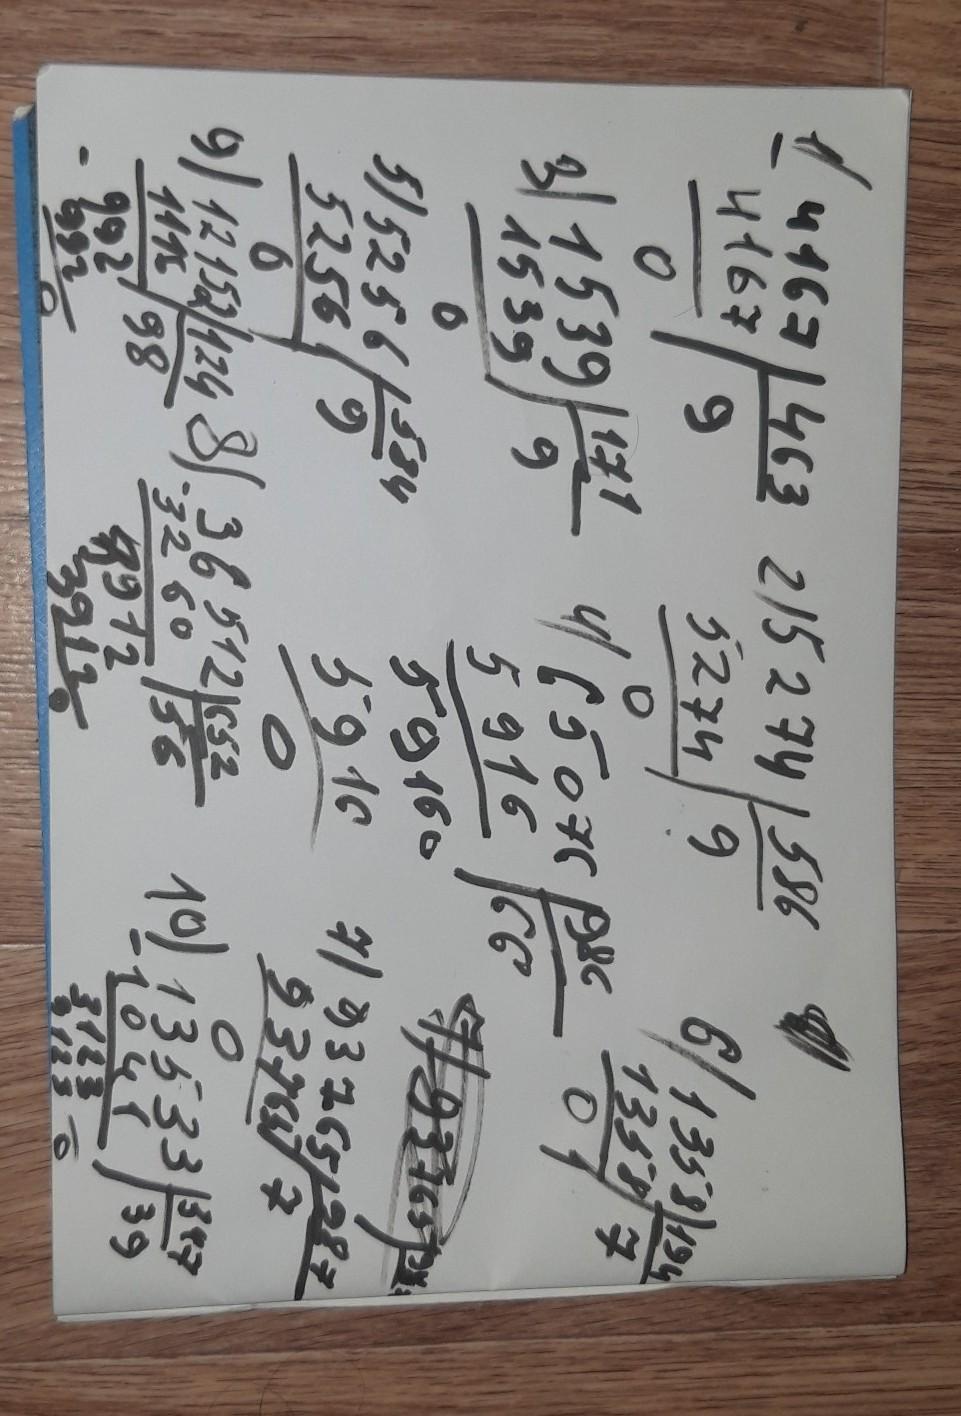 1) 4167 463
- 4167 9
0
2) 5274 586
5274 9
0
3) 1539 171
1539 9
0
4) 65076 986
5916 66
59160
5916
0
5) 5256 584
5256 9
0
6) 1358 194
1358 7
0
7) 93765 987
7
8) 36512 652
-3260 56
3912
3912
0
9) 12152 124
1116 98
992
- 992
0
10) 13533 347
- 1041 39
3123
3123
0